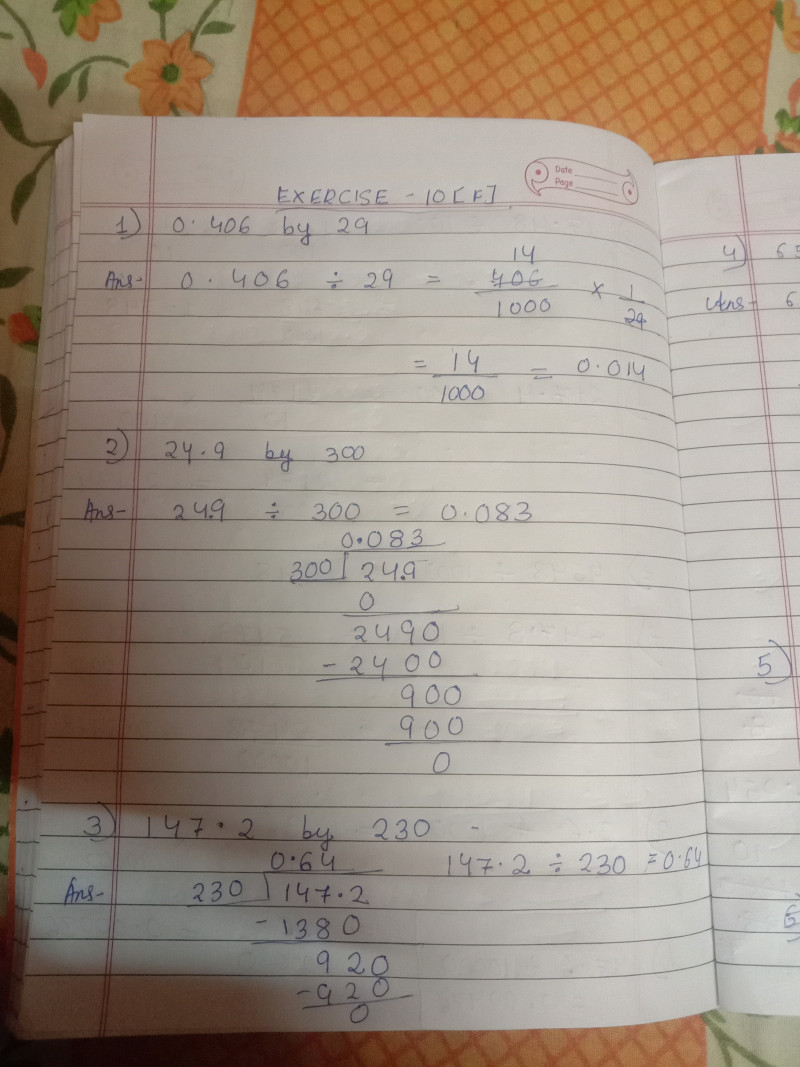 Date
Page
EXERCISE - 10 [F]
1) 0.406 by 29
Ans- 0.406 ÷ 29 = 14
406
1000 × 1
29
= 14
1000 = 0.014
2) 24.9 by 300
Ans- 24.9 ÷ 300 = 0.083
0.083
300 24.9
0
2490
- 2400
900
900
0
3) 147.2 by 230 -
0.64 147.2 ÷ 230 = 0.64
Ans- 230 147.2
- 1380
920
- 920
0
4)
Ans-
5)